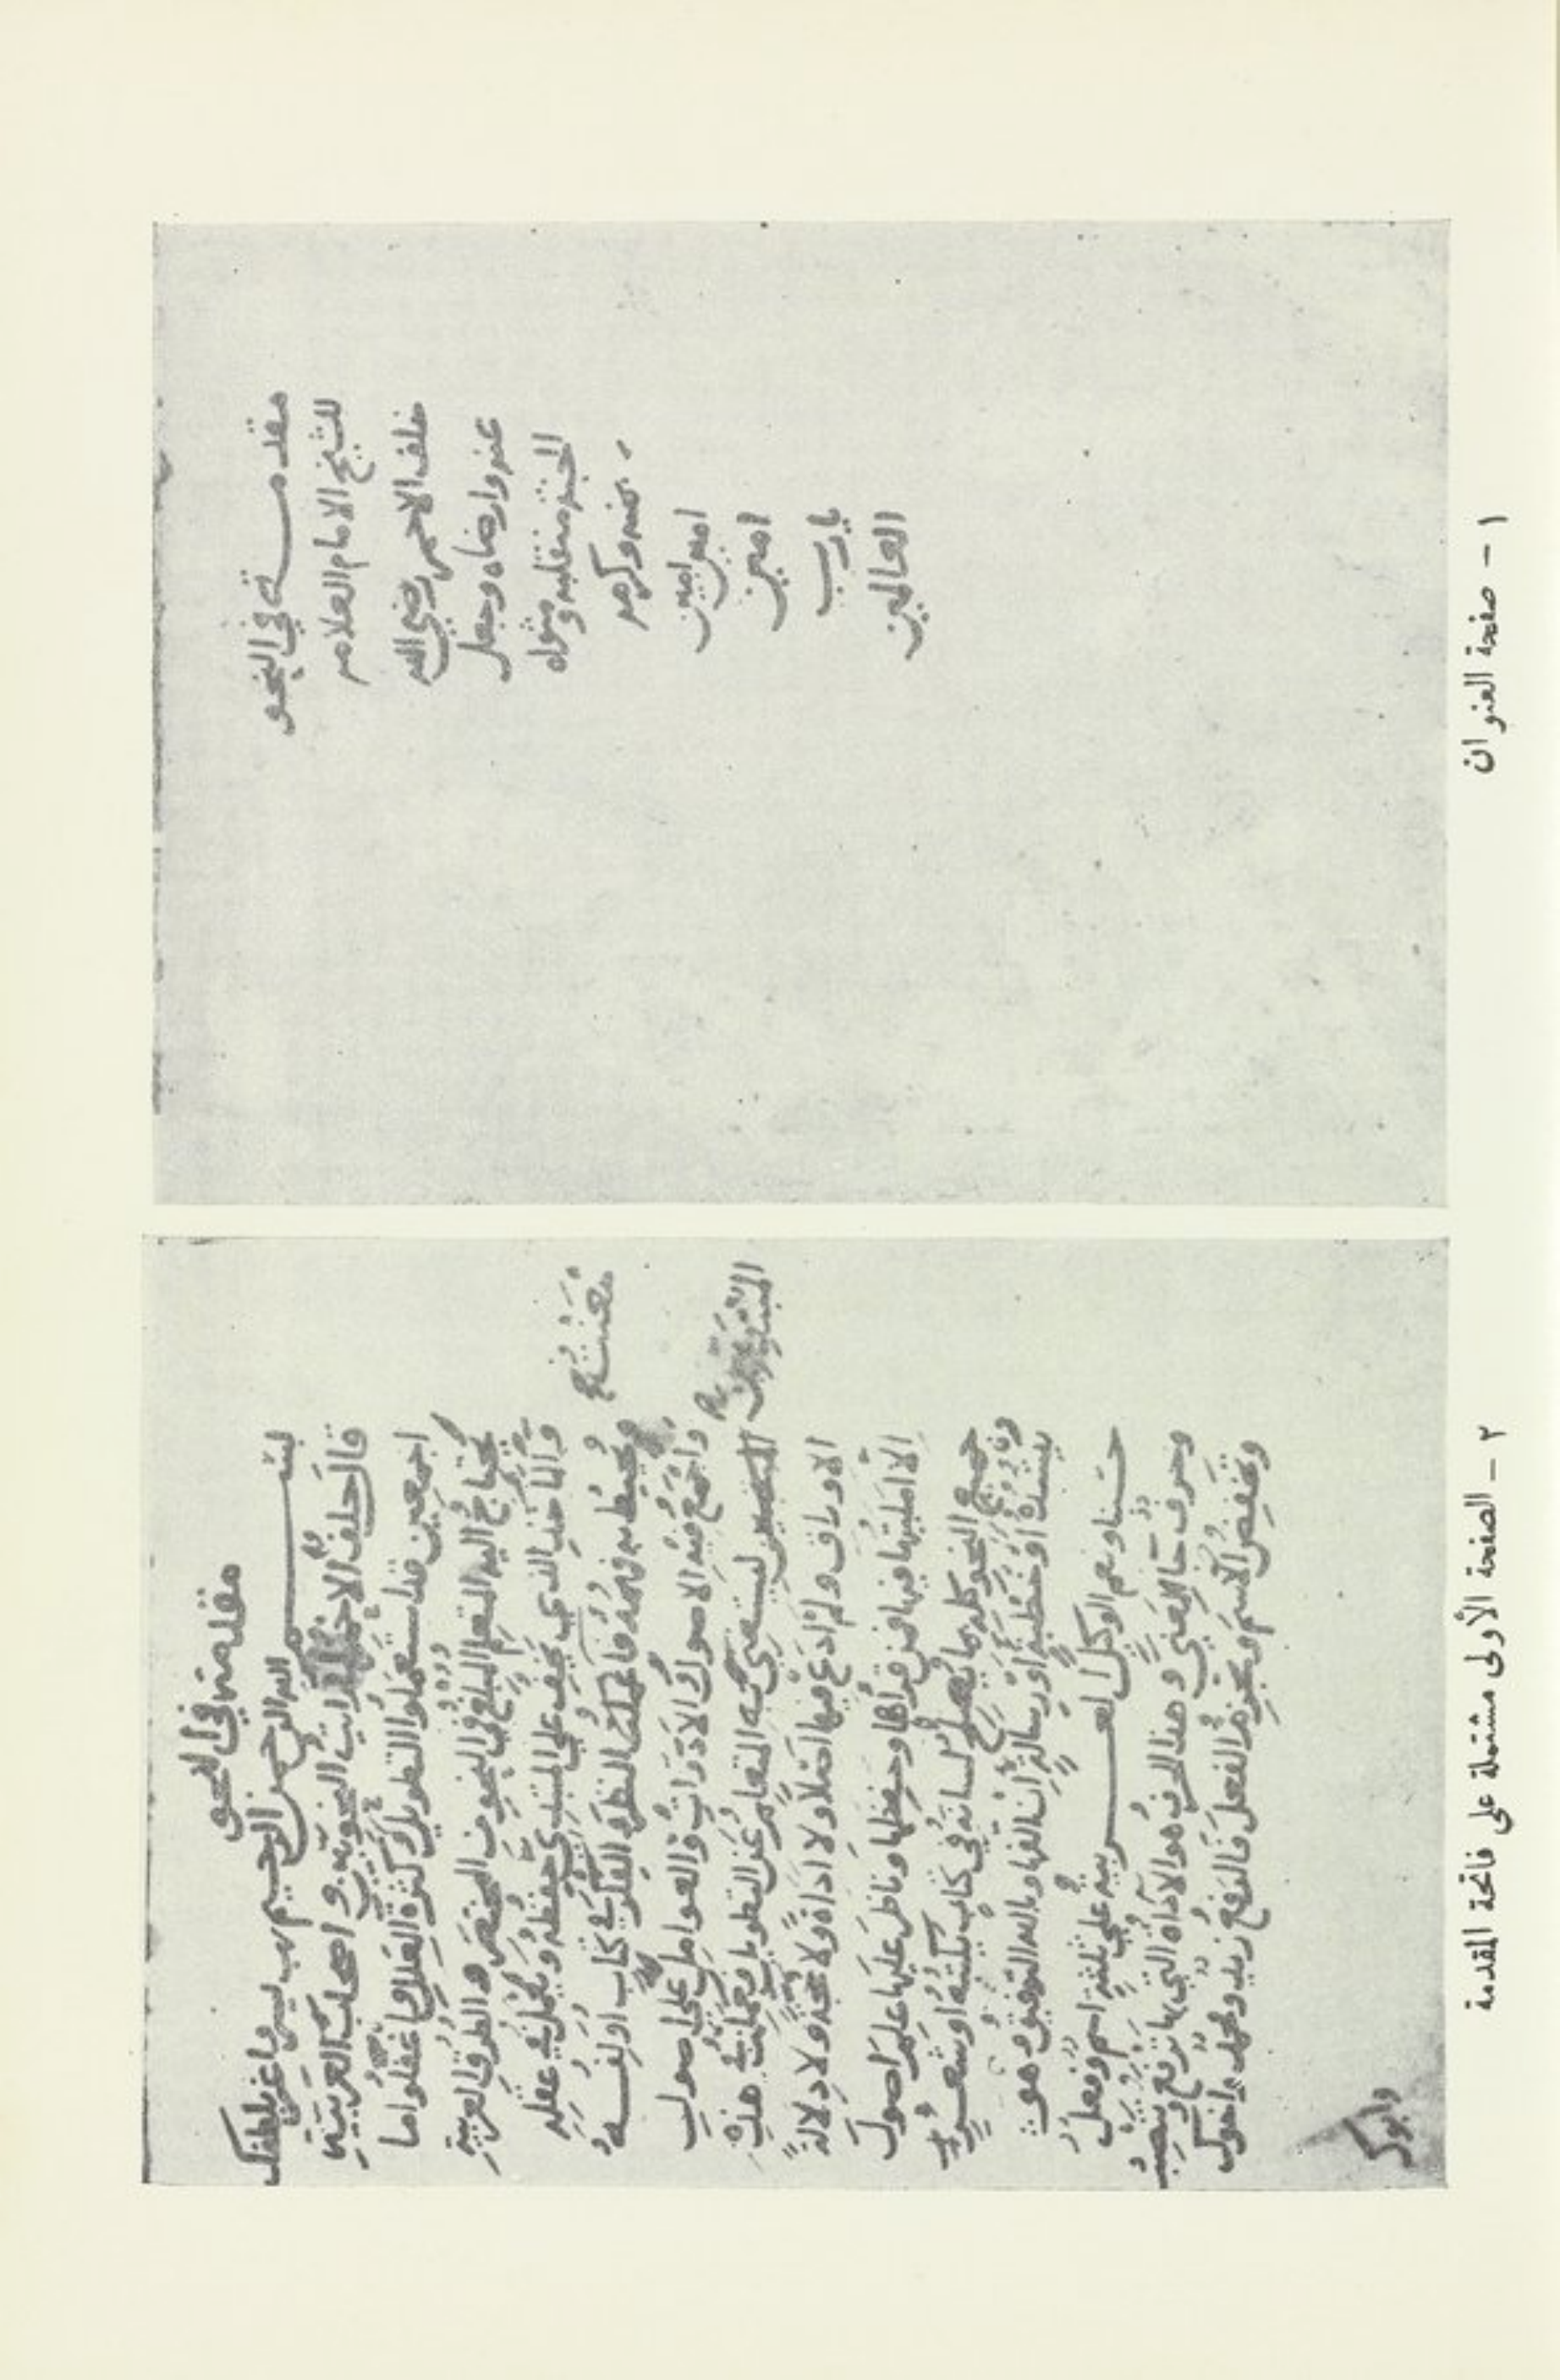 مقدمة في النحو
للشيخ الامام العلامه
خلف الاحمر رضي الله
عنه وارضاه وجعل
الجنة منقلبه ومثواه
بمنه وكرمه
امين امين
امين
يا رب
العالمين
١ - صفحة العنوان
مقدمة في النحو
بسم الله الرحمن الرحيم رب يسر واعن بلطفك
قال خلف الاحمر لما رايت النحويين واصحاب العربية
اجمعين قد استعملوا التطويل وكثرة العلل واغفلوا ما
يحتاج اليه المتعلم المتبلغ في النحو من المختصر والطرق العربية
والماخذ الذي يخف على المبتدي حفظه ويعمل في عقله
ويحيط به فهمه فامعنت النظر والفكر في كتاب اولفه
معنت
واجمع فيه الاصول والادوات والعوامل على اصول
المبتدئين ليستغني به المتعلم عن التطويل فعملت هذه
الاوراق ولم ادع فيها اصلا ولا اداة ولا حجة ولا دلالة
الا امليتها فيها فمن قرأها وحفظها وناظر عليها علم اصول
جميع النحو كله مما يصلح لسانه في كتاب يكتبه او شعر
ينشده او خطبة او رسالة ان الفها وبالله التوفيق وهو
حسبنا ونعم الوكيل العربية على ثلثة اسم وفعل
وحرف جا لمعنى وهذا الحرف هو الاداة التي بها ترفع وتنصب
وتخفض الاسم وتجزم الفعل فالرفع زيد ومحمد واخوك
وابوك
٢ - الصفحة الأولى مشتملة على فاتحة المقدمة